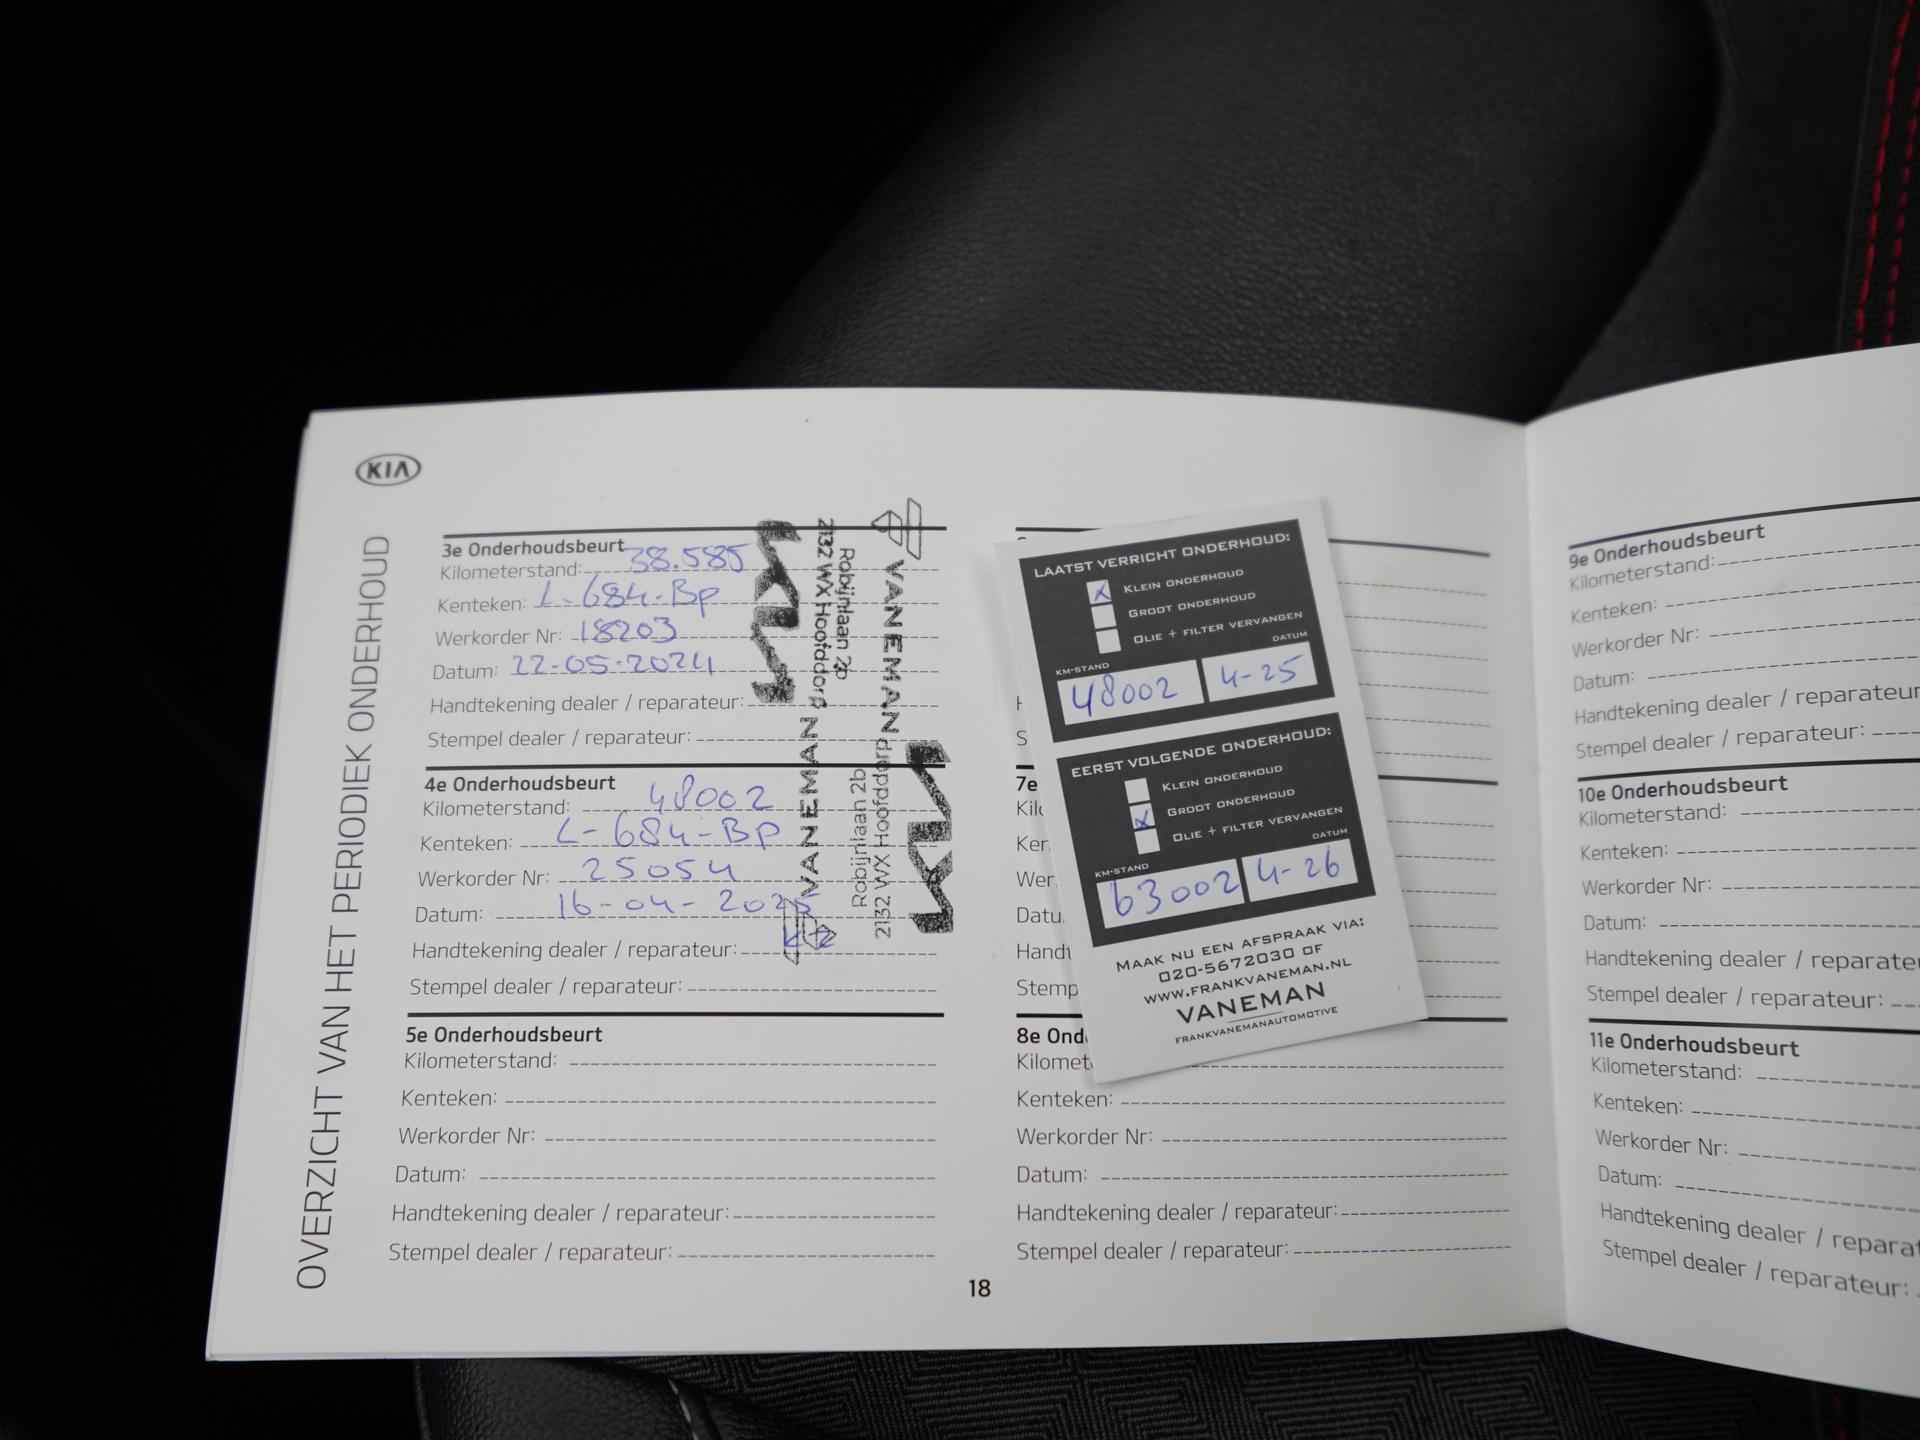 KIA
OVERZICHT VAN HET PERIODIEK ONDERHOUD
3e Onderhoudsbeurt
Kilometerstand: 38.585
Kenteken: L-684-BP
Werkorder Nr: 18203
Datum: 22-05-2024
Handtekening dealer / reparateur:
Stempel dealer / reparateur:
VANEMAN
Robijnlaan
2132 WX Hoofddorp
4e Onderhoudsbeurt
Kilometerstand: 48002
Kenteken: L-684-BP
Werkorder Nr: 25054
Datum: 16-04-2025
Handtekening dealer / reparateur:
Stempel dealer / reparateur:
VANEMAN
Robijnlaan 2b
2132 WX Hoofddorp
5e Onderhoudsbeurt
Kilometerstand:
Kenteken:
Werkorder Nr:
Datum:
Handtekening dealer / reparateur:
Stempel dealer / reparateur:
LAATST VERRICHT ONDERHOUD:
X KLEIN ONDERHOUD
GROOT ONDERHOUD
OLIE + FILTER VERVANGEN
KM-STAND DATUM
48002 4-25
EERST VOLGENDE ONDERHOUD:
KLEIN ONDERHOUD
X GROOT ONDERHOUD
OLIE + FILTER VERVANGEN
KM-STAND DATUM
63002 4-26
MAAK NU EEN AFSPRAAK VIA:
020-5672030 OF
WWW.FRANKVANEMAN.NL
VANEMAN
FRANKVANEMANAUTOMOTIVE
H
S
7e
Kil
Ker
Wer
Datu
Handt
Stemp
8e Ond
Kilomet
Kenteken:
Werkorder Nr:
Datum:
Handtekening dealer / reparateur:
Stempel dealer / reparateur:
18
9e Onderhoudsbeurt
Kilometerstand:
Kenteken:
Werkorder Nr:
Datum:
Handtekening dealer / reparateur
Stempel dealer / reparateur:
10e Onderhoudsbeurt
Kilometerstand:
Kenteken:
Werkorder Nr:
Datum:
Handtekening dealer / reparate
Stempel dealer / reparateur:
11e Onderhoudsbeurt
Kilometerstand:
Kenteken:
Werkorder Nr:
Datum:
Handtekening dealer / reparat
Stempel dealer / reparateur: